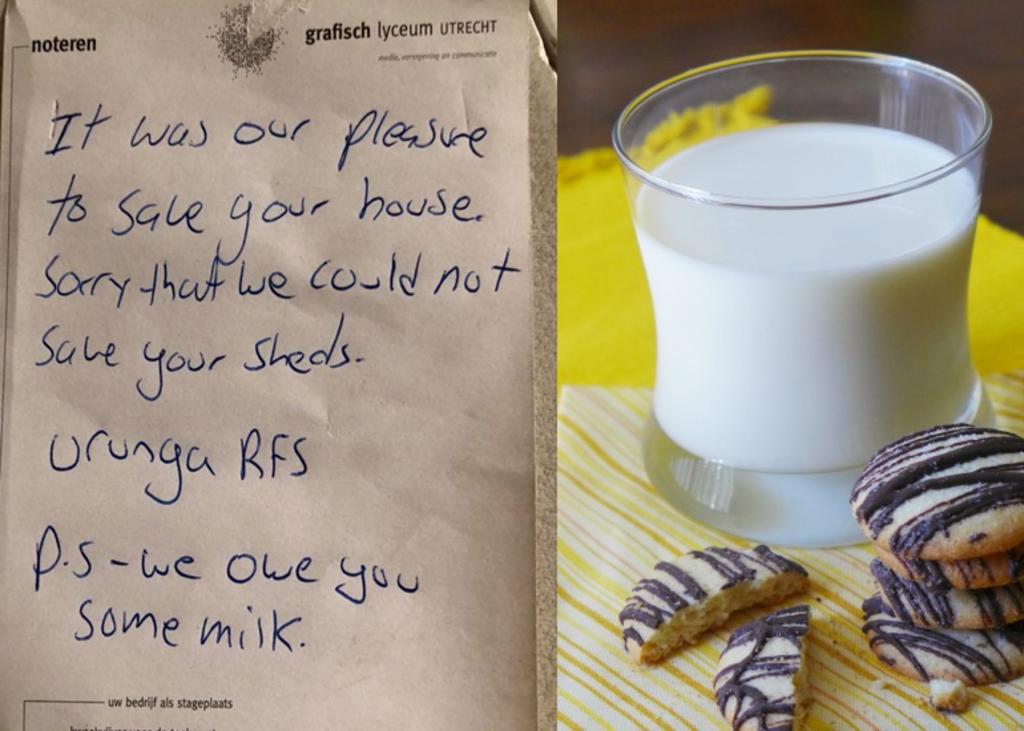 noteren
grafisch lyceum UTRECHT
media, vormgeving en communicatie
It was our pleasure
to save your house.
Sorry that we could not
save your sheds.
Urunga RFS
P.S - we owe you
some milk.
uw bedrijf als stageplaats